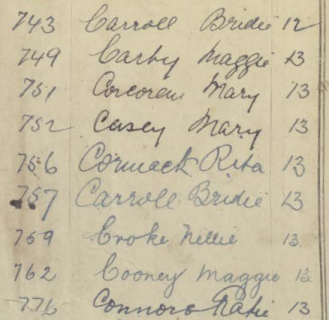 743 Carroll Bridie 12
749 Carby Maggie 13
751 Corcoran Mary 13
752 Casey Mary 13
756 Cormack Rita 13
757 Carroll Bridie 13
759 Croke Nellie 13
762 Cooney Maggie 13
776 Connors Katie 13